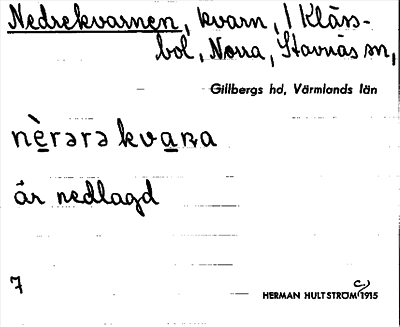 Nedrekvarnen, kvarn, / Kläss-
bol, Norra, Stavnäs sn,
Gillbergs hd, Värmlands län
nèrərə kvaɳa
är nedlagd
7
HERMAN HULTSTRÖM 1915